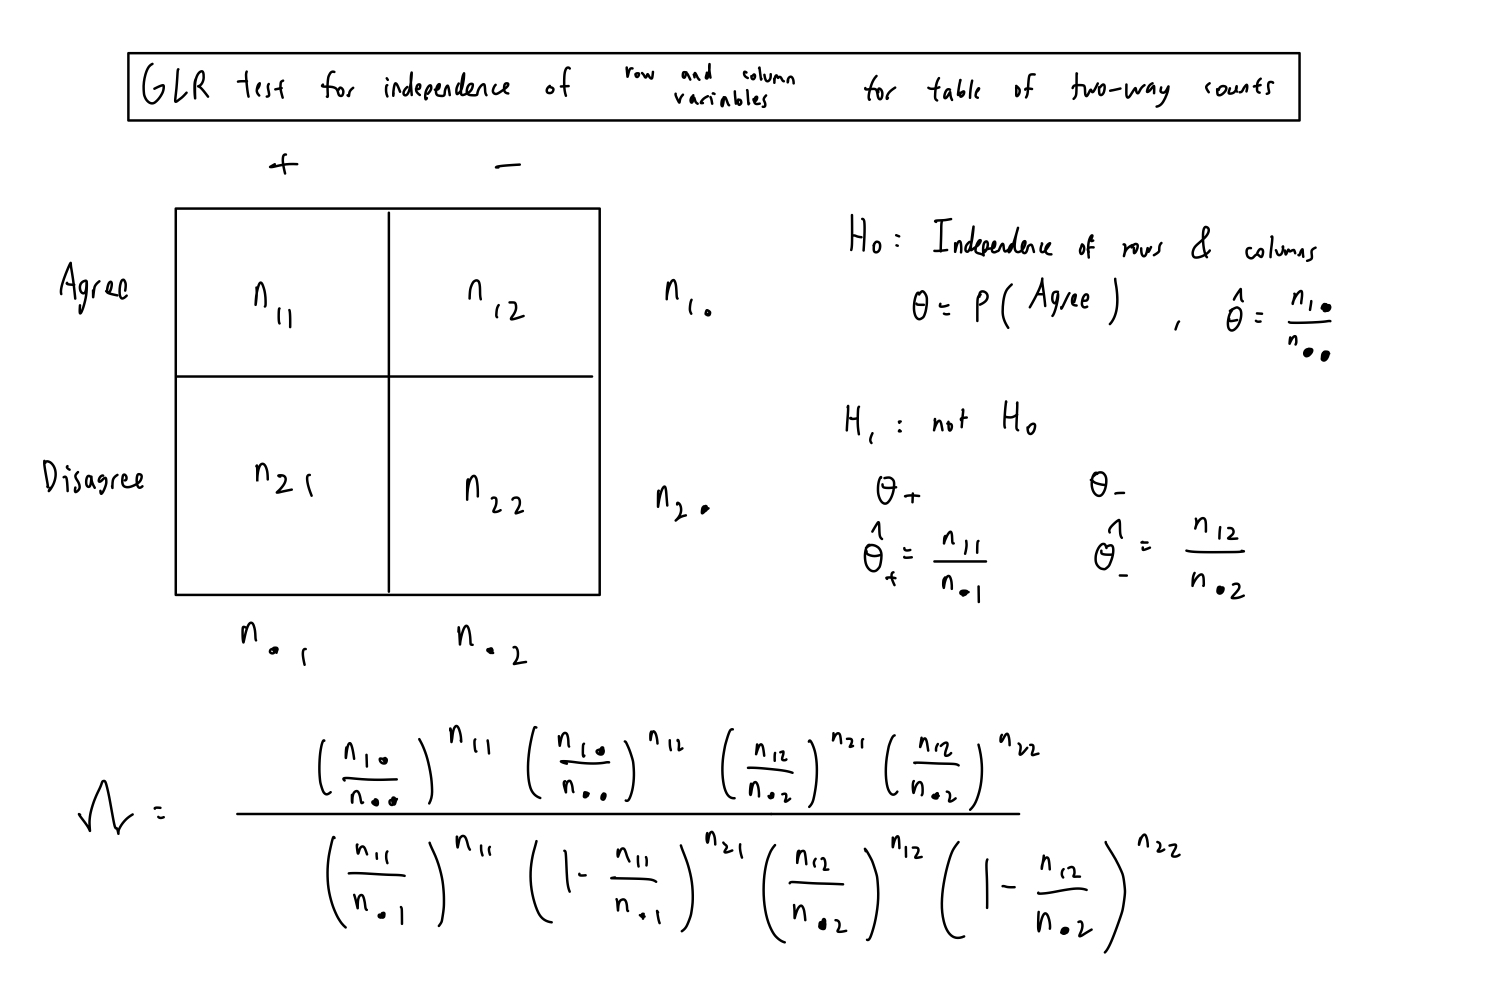 GLR test for independence of row and column variables for table of two-way counts
+ −
Agree n₁₁ n₁₂ n₁•
Disagree n₂₁ n₂₂ n₂•
n•₁ n•₂
H₀: Independence of rows & columns
θ = P(Agree), θ̂ = n₁•/n••
H₁: not H₀
θ₊ θ₋
θ̂₊ = n₁₁/n•₁ θ̂₋ = n₁₂/n•₂
Λ = (n₁•/n••)^n₁₁ (n₁•/n••)^n₁₂ (n₁₂/n•₂)^n₂₁ (n₁₂/n•₂)^n₂₂
(n₁₁/n•₁)^n₁₁ (1 - n₁₁/n•₁)^n₂₁ (n₁₂/n•₂)^n₁₂ (1 - n₁₂/n•₂)^n₂₂